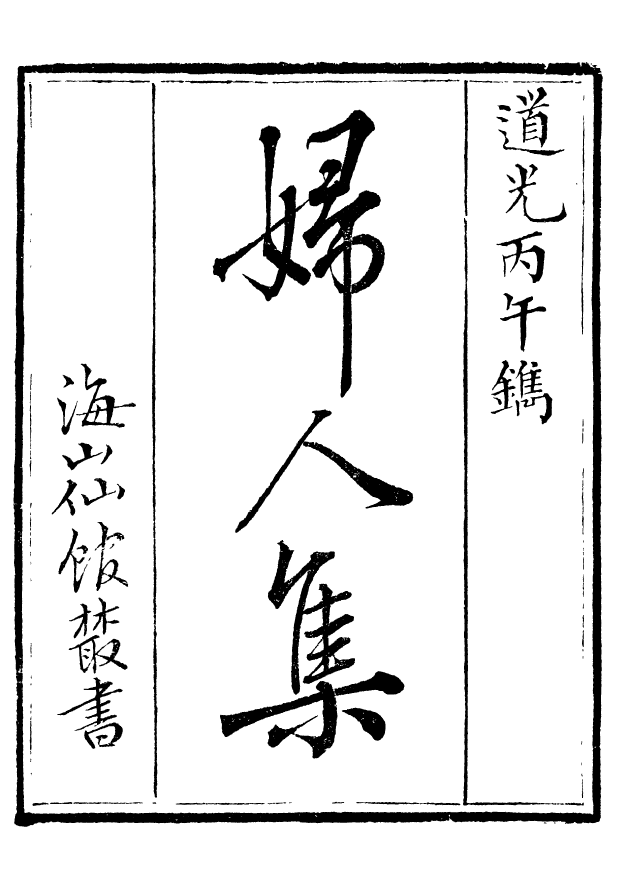 道光丙午鐫
婦人集
海山仙館叢書